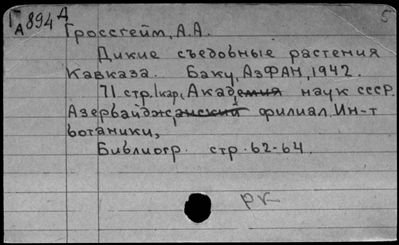 Г А 894 Д 5
Гроссгейм, А.А.
Дикие съедобные растения
Кавказа. Баку, АзФАН, 1942.
71 стр. 1 кар. (Академия наук СССР.
Азербайджанский филиал. Ин-т
ботаники,
Библиогр. стр. 62-64.
рк